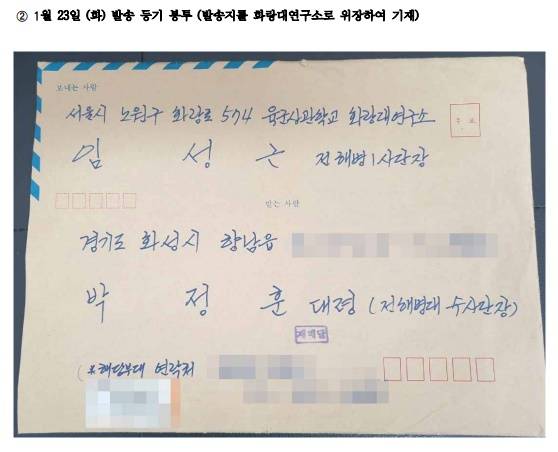 ② 1월 23일 (화) 발송 등기 봉투 (발송지를 화랑대연구소로 위장하여 기재)
보내는 사람
서울시 노원구 화랑로 574 육군사관학교 화랑대연구소
우 표
임 성 근 전 해병 1사단장
받는 사람
경기도 화성시 향남읍
박 정 훈 대령 (전 해병대 수사단장)
재배달
(※해당부대 연락처